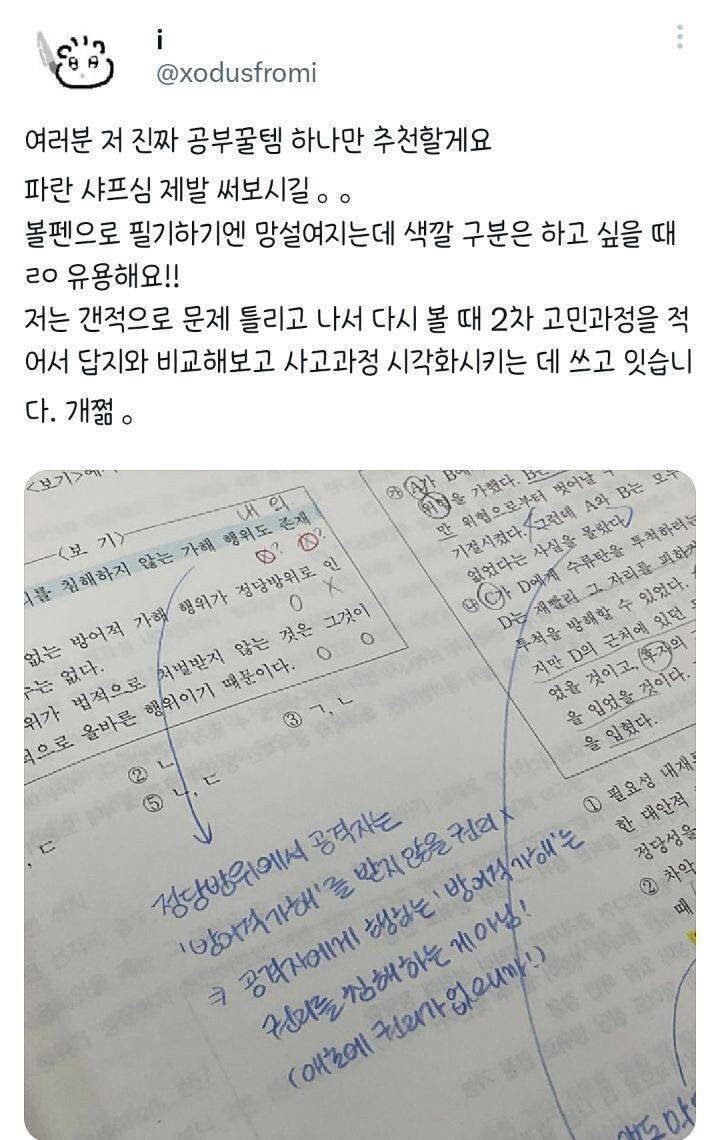 i
@xodusfromi
여러분 저 진짜 공부꿀템 하나만 추천할게요
파란 샤프심 제발 써보시길 。。
볼펜으로 필기하기엔 망설여지는데 색깔 구분은 하고 싶을 때
ㄹㅇ 유용해요!!
저는 갠적으로 문제 틀리고 나서 다시 볼 때 2차 고민과정을 적
어서 답지와 비교해보고 사고과정 시각화시키는 데 쓰고 잇습니
다. 개쩖 。
<보기>에
<보 기>
내 의
를 침해하지 않는 가해 행위도 존재
X? X?
없는 방어적 가해 행위가 정당방위로 인
O X
는 없다.
위가 법적으로 처벌받지 않는 것은 그것이
적으로 올바른 행위이기 때문이다. O O
③ ㄱ, ㄴ
② ㄴ
⑤ ㄴ, ㄷ
, ㄷ
정당방위에서 공격자는
'방어적 가해'를 받지 않을 권리 X
⇒ 공격자에게 행하는 '방어적 가해'는
권리를 '침해'하는 게 아님!
(애초에 권리가 없으니까!)
㉮ A가 B에
위협을 가했다. B는
만 위험으로부터 벗어날 수
기절시켰다. 그런데 A와 B는 모두
없었다는 사실을 몰랐다.
㉯ C가 D에게 수류탄을 투척하려는
D는 재빨리 그 자리를 피하
투척을 방해할 수 있었다.
지만 D의 근처에 있던
었을 것이고, 후자의
을 입었을 것이다.
을 입혔다.
① 필요성 내재
한 대안적
정당성을
② 차악
때